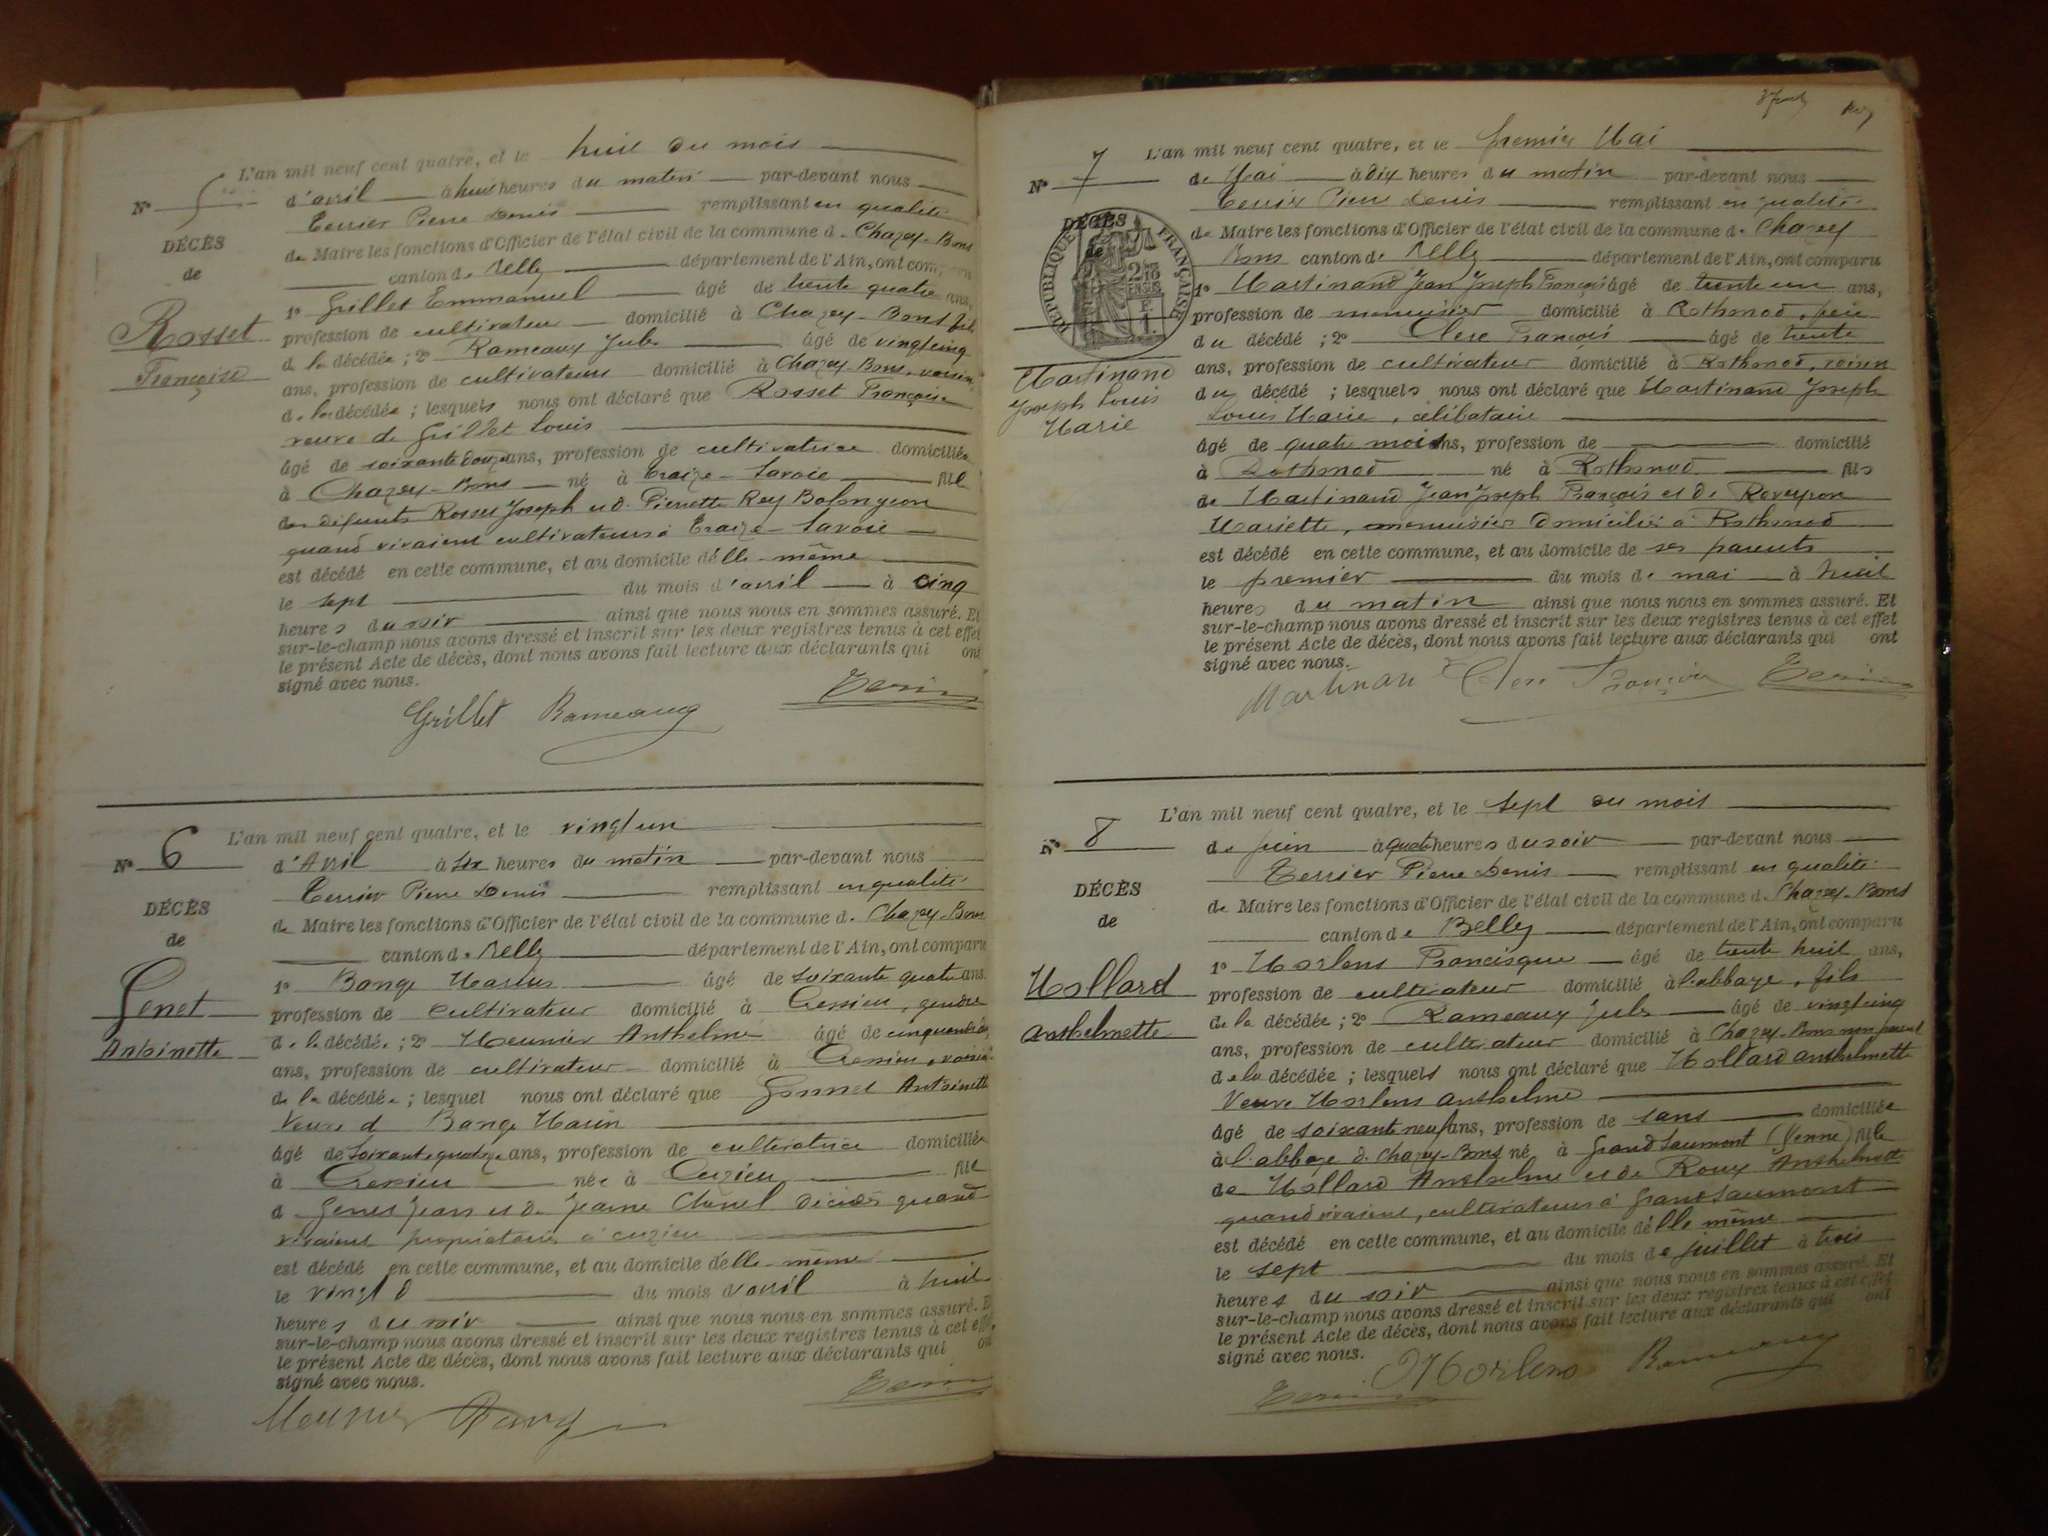 L'an mil neuf cent quatre, et le huit du mois
N° 5 d'avril à huit heures du matin par-devant nous
Terrier Pierre Denis remplissant en qualité
DÉCÈS
de Maire les fonctions d'Officier de l'état civil de la commune d. Chazey-Bons
de
canton de Belley département de l'Ain, ont comparu
1° Grillet Emmanuel âgé de trente quatre ans,
Rosset
profession de cultivateur domicilié à Chazey-Bons fils
Françoise
de la décédée ; 2° Rameaux Jules âgé de vingt cinq
ans, profession de cultivateur domicilié à Chazey-Bons, voisin
de la décédée ; lesquels nous ont déclaré que Rosset Françoise
veuve de Grillet Louis
âgé de soixante douze ans, profession de cultivatrice domiciliée
à Chazey-Bons né à Traize-Savoie fille
des défunts Rosset Joseph et d. Pierrette Rey Bolongeon
quand vivaient cultivateurs à Traize-Savoie
est décédé en cette commune, et au domicile d'elle-même
le sept du mois d'avril à cinq
heures du soir ainsi que nous nous en sommes assuré. Et
sur-le-champ nous avons dressé et inscrit sur les deux registres tenus à cet effet
le présent Acte de décès, dont nous avons fait lecture aux déclarants qui ont
signé avec nous.
Grillet Rameaux Terrier
L'an mil neuf cent quatre, et le vingt un
N° 6 d'Avril à six heures du matin par-devant nous
Terrier Pierre Denis remplissant en qualité
DÉCÈS
de Maire les fonctions d'Officier de l'état civil de la commune d. Chazey-Bons
de
canton d. Belley département de l'Ain, ont comparu
Genet
1° Bange Marius âgé de soixante quatre ans.
profession de cultivateur domicilié à Cressieu, gendre
Antoinette
de la décédée ; 2° Meunier Anthelme âgé de cinquante
ans, profession de cultivateur domicilié à Cressieu, voisin
de la décédée ; lesquel nous ont déclaré que Genet Antoinette
Veuve d Bange Marin
âgé de soixante quatorze ans, profession de cultivatrice domiciliée
à Cressieu née à Cuzieu fille
d Genet Jean et d. Jeanne décédés quand
vivaient propriétaires à Cuzieu
est décédé en cette commune, et au domicile d'elle-même
le vingt du mois d'avril à huit
heures du soir ainsi que nous nous en sommes assuré. Et
sur-le-champ nous avons dressé et inscrit sur les deux registres tenus à cet effet
le présent Acte de décès, dont nous avons fait lecture aux déclarants qui ont
signé avec nous.
Meunier Terrier
L'an mil neuf cent quatre, et le premier Mai
N° 7 de Mai à dix heures du matin par-devant nous
Terrier Pierre Denis remplissant en qualité
DÉCÈS
de Maire les fonctions d'Officier de l'état civil de la commune d. Chazey
de
Bons canton de Belley département de l'Ain, ont comparu
RÉPUBLIQUE FRANÇAISE
1° Martinand Jean Joseph François âgé de trente un ans,
profession de menuisier domicilié à Rothonod, père
du décédé ; 2° Clerc François âgé de trente
ans, profession de cultivateur domicilié à Rothonod, voisin
Martinand
Joseph Louis
Marie
du décédé ; lesquels nous ont déclaré que Martinand Joseph
Louis Marie, célibataire
âgé de quatre mois ans, profession de domicilié
à Rothonod né à Rothonod fils
de Martinand Jean Joseph François et de Roveyron
Mariette, menuisier domiciliés à Rothonod
est décédé en cette commune, et au domicile de ses parents
le premier du mois de mai à huit
heures du matin ainsi que nous nous en sommes assuré. Et
sur-le-champ nous avons dressé et inscrit sur les deux registres tenus à cet effet
le présent Acte de décès, dont nous avons fait lecture aux déclarants qui ont
signé avec nous.
Martinand Clerc François Terrier
L'an mil neuf cent quatre, et le sept du mois
N° 8 de juin à quatre heures du soir par-devant nous
Terrier Pierre Denis remplissant en qualité
DÉCÈS
de Maire les fonctions d'Officier de l'état civil de la commune d. Chazey-Bons
de
canton de Belley département de l'Ain, ont comparu
1° Morlens Francisque âgé de trente huit ans,
Mollard
profession de cultivateur domicilié à l'abbaye, fils
de la décédée ; 2° Rameaux Jules âgé de vingt cinq
Anthelmette
ans, profession de cultivateur domicilié à Chazey-Bons non parent
de la décédée ; lesquels nous ont déclaré que Mollard Anthelmette
Veuve Morlens Anthelme
âgé de soixante neuf ans, profession de sans domiciliée
à l'abbaye d. Chazey-Bons né à Grand Saumont (Yenne) fille
de Mollard Anthelme et de Roux Anthelmette
quand vivaient, cultivateurs à Grand Saumont
est décédé en cette commune, et au domicile d'elle même
le sept du mois de juillet à trois
heures du soir ainsi que nous nous en sommes assuré. Et
sur-le-champ nous avons dressé et inscrit sur les deux registres tenus à cet effet
le présent Acte de décès, dont nous avons fait lecture aux déclarants qui ont
signé avec nous.
Terrier Morlens Rameaux